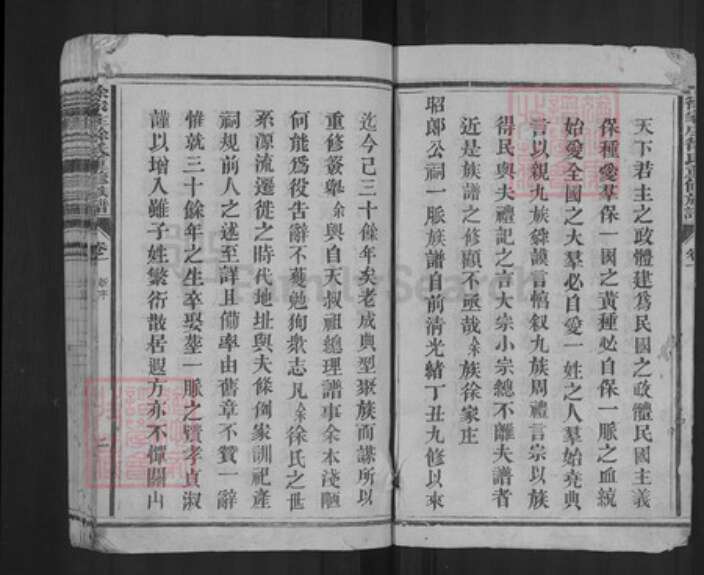 天下君主之政體建爲民國之政體民國主義
保種愛羣保一國之黃種必自保一脈之血統
始愛全國之大羣必自愛一姓之人羣始堯典
言以親九族皋謨言惇叙九族周禮言宗以族
得民與夫禮記之言大宗小宗總不離夫譜者
近是族譜之修顧不亟哉余族徐家庄
昭郎公祠一脈族譜自前清光緒丁丑九修以來
迄今已三十餘年矣老成典型聚族而謀所以
重修簽舉余與自天叔祖總理譜事余本淺陋
何能爲役告辭不蒦勉徇衆志凡余徐氏之世
系源流遷徙之時代地址與夫條例家訓祀產
祠規前人之述至詳且備率由舊章不贊一辭
惟就三十餘年之生卒娶塟一脈之賢孝貞淑
謹以增入雖子姓繁衍散居遐方亦不憚關山
徐家庄徐氏重修族譜 卷一
FamilySearch